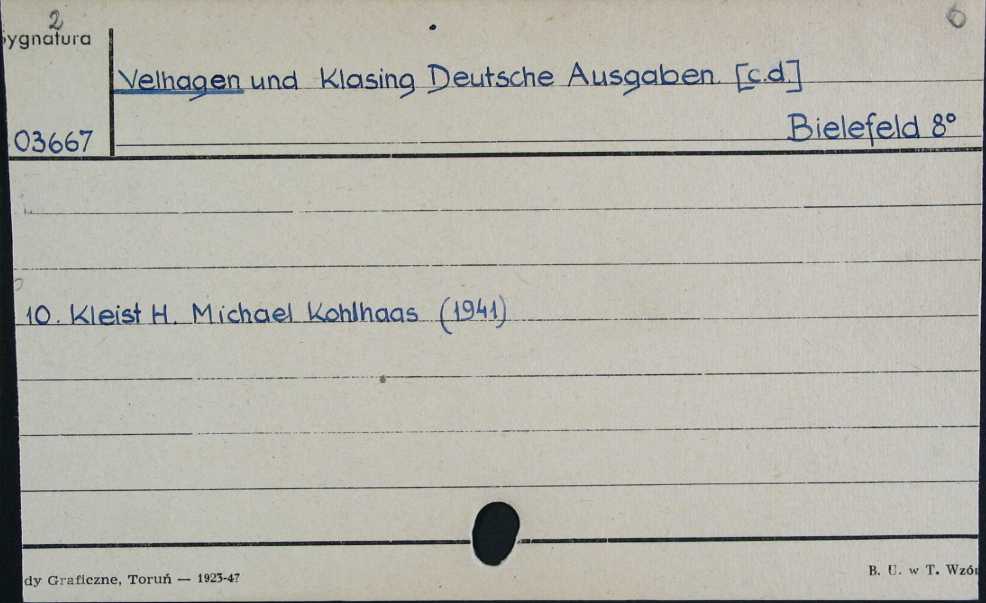 2
6
ygnatura
Velhagen und Klasing Deutsche Ausgaben. [c.d.]
03667
Bielefeld 8°
10. Kleist H. Michael Kohlhaas (1941)
dy Graficzne, Toruń — 1923-47
B. U. w T. Wzó